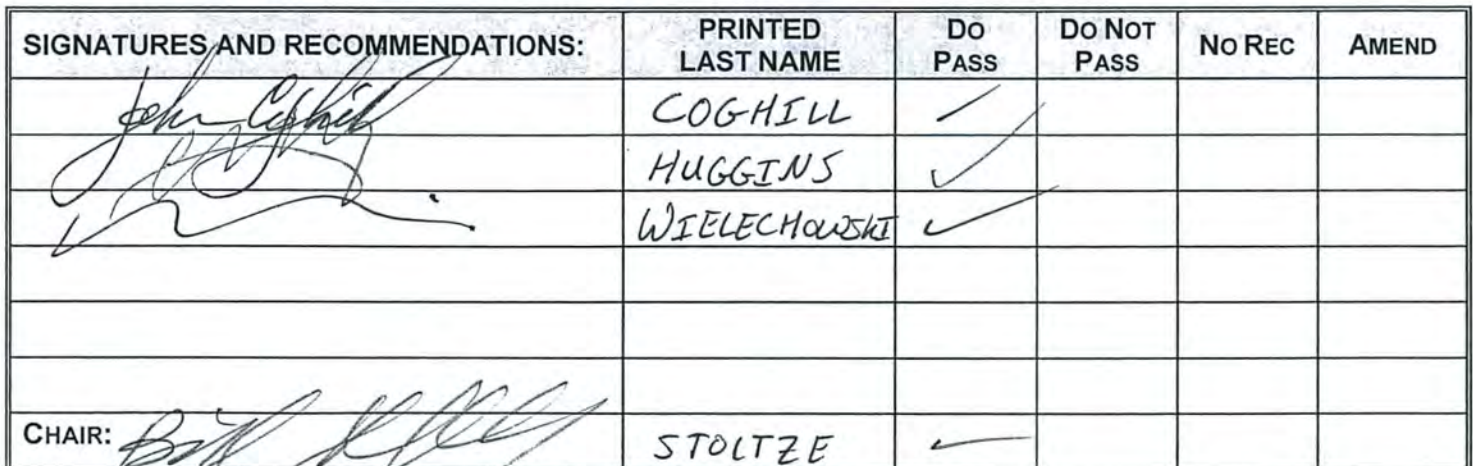 SIGNATURES AND RECOMMENDATIONS: PRINTED LAST NAME DO PASS DO NOT PASS NO REC AMEND
John Coghill COGHILL ✓
HUGGINS ✓
WIELECHOWSKI ✓
CHAIR: Bill STOLTZE ✓